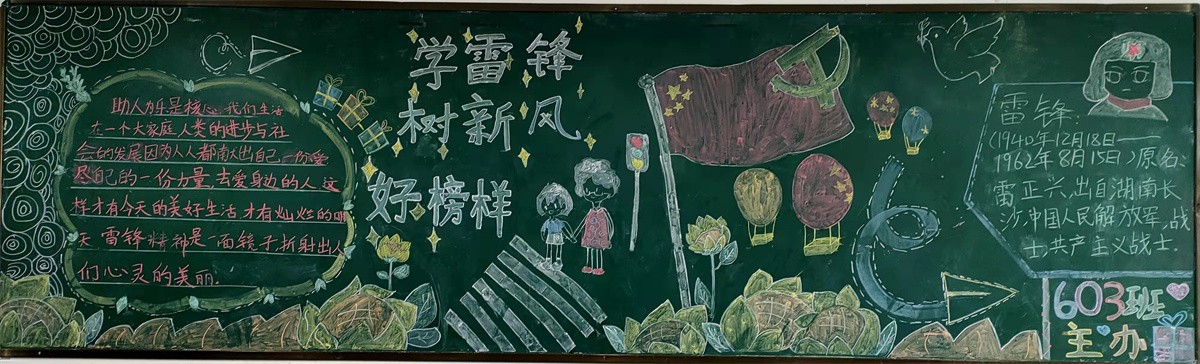 助人为乐是核心 我们生活
在一个大家庭人类的进步与社
会的发展因为人人都献出自己一份爱
尽自己的一份力量 去爱身边的人 这
样才有今天的美好生活 才有灿烂的明
天 雷锋精神是一面镜子折射出人
们心灵的美丽.
学雷锋
树新风
好榜样
雷锋:
(1940年12月18日——
1962年8月15日)原名:
雷正兴,出自湖南长
沙,中国人民解放军,战
士,共产主义战士.
603班
主办